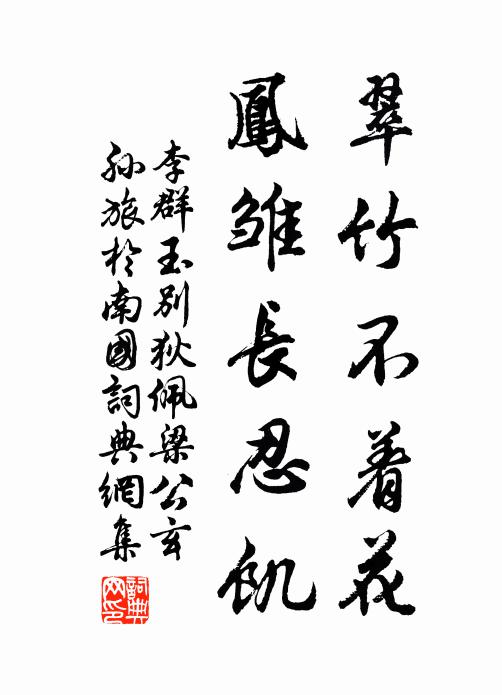 翠竹不着花
鳳雛長忍飢
李群玉別狄佩梁公玄
孫旅於南國詞典網集
詞典网印